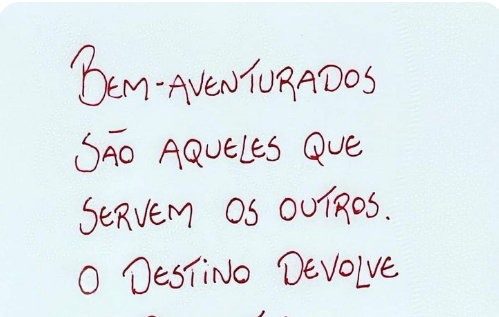 BEM-AVENTURADOS
SÃO AQUELES QUE
SERVEM OS OUTROS.
O DESTINO DEVOLVE